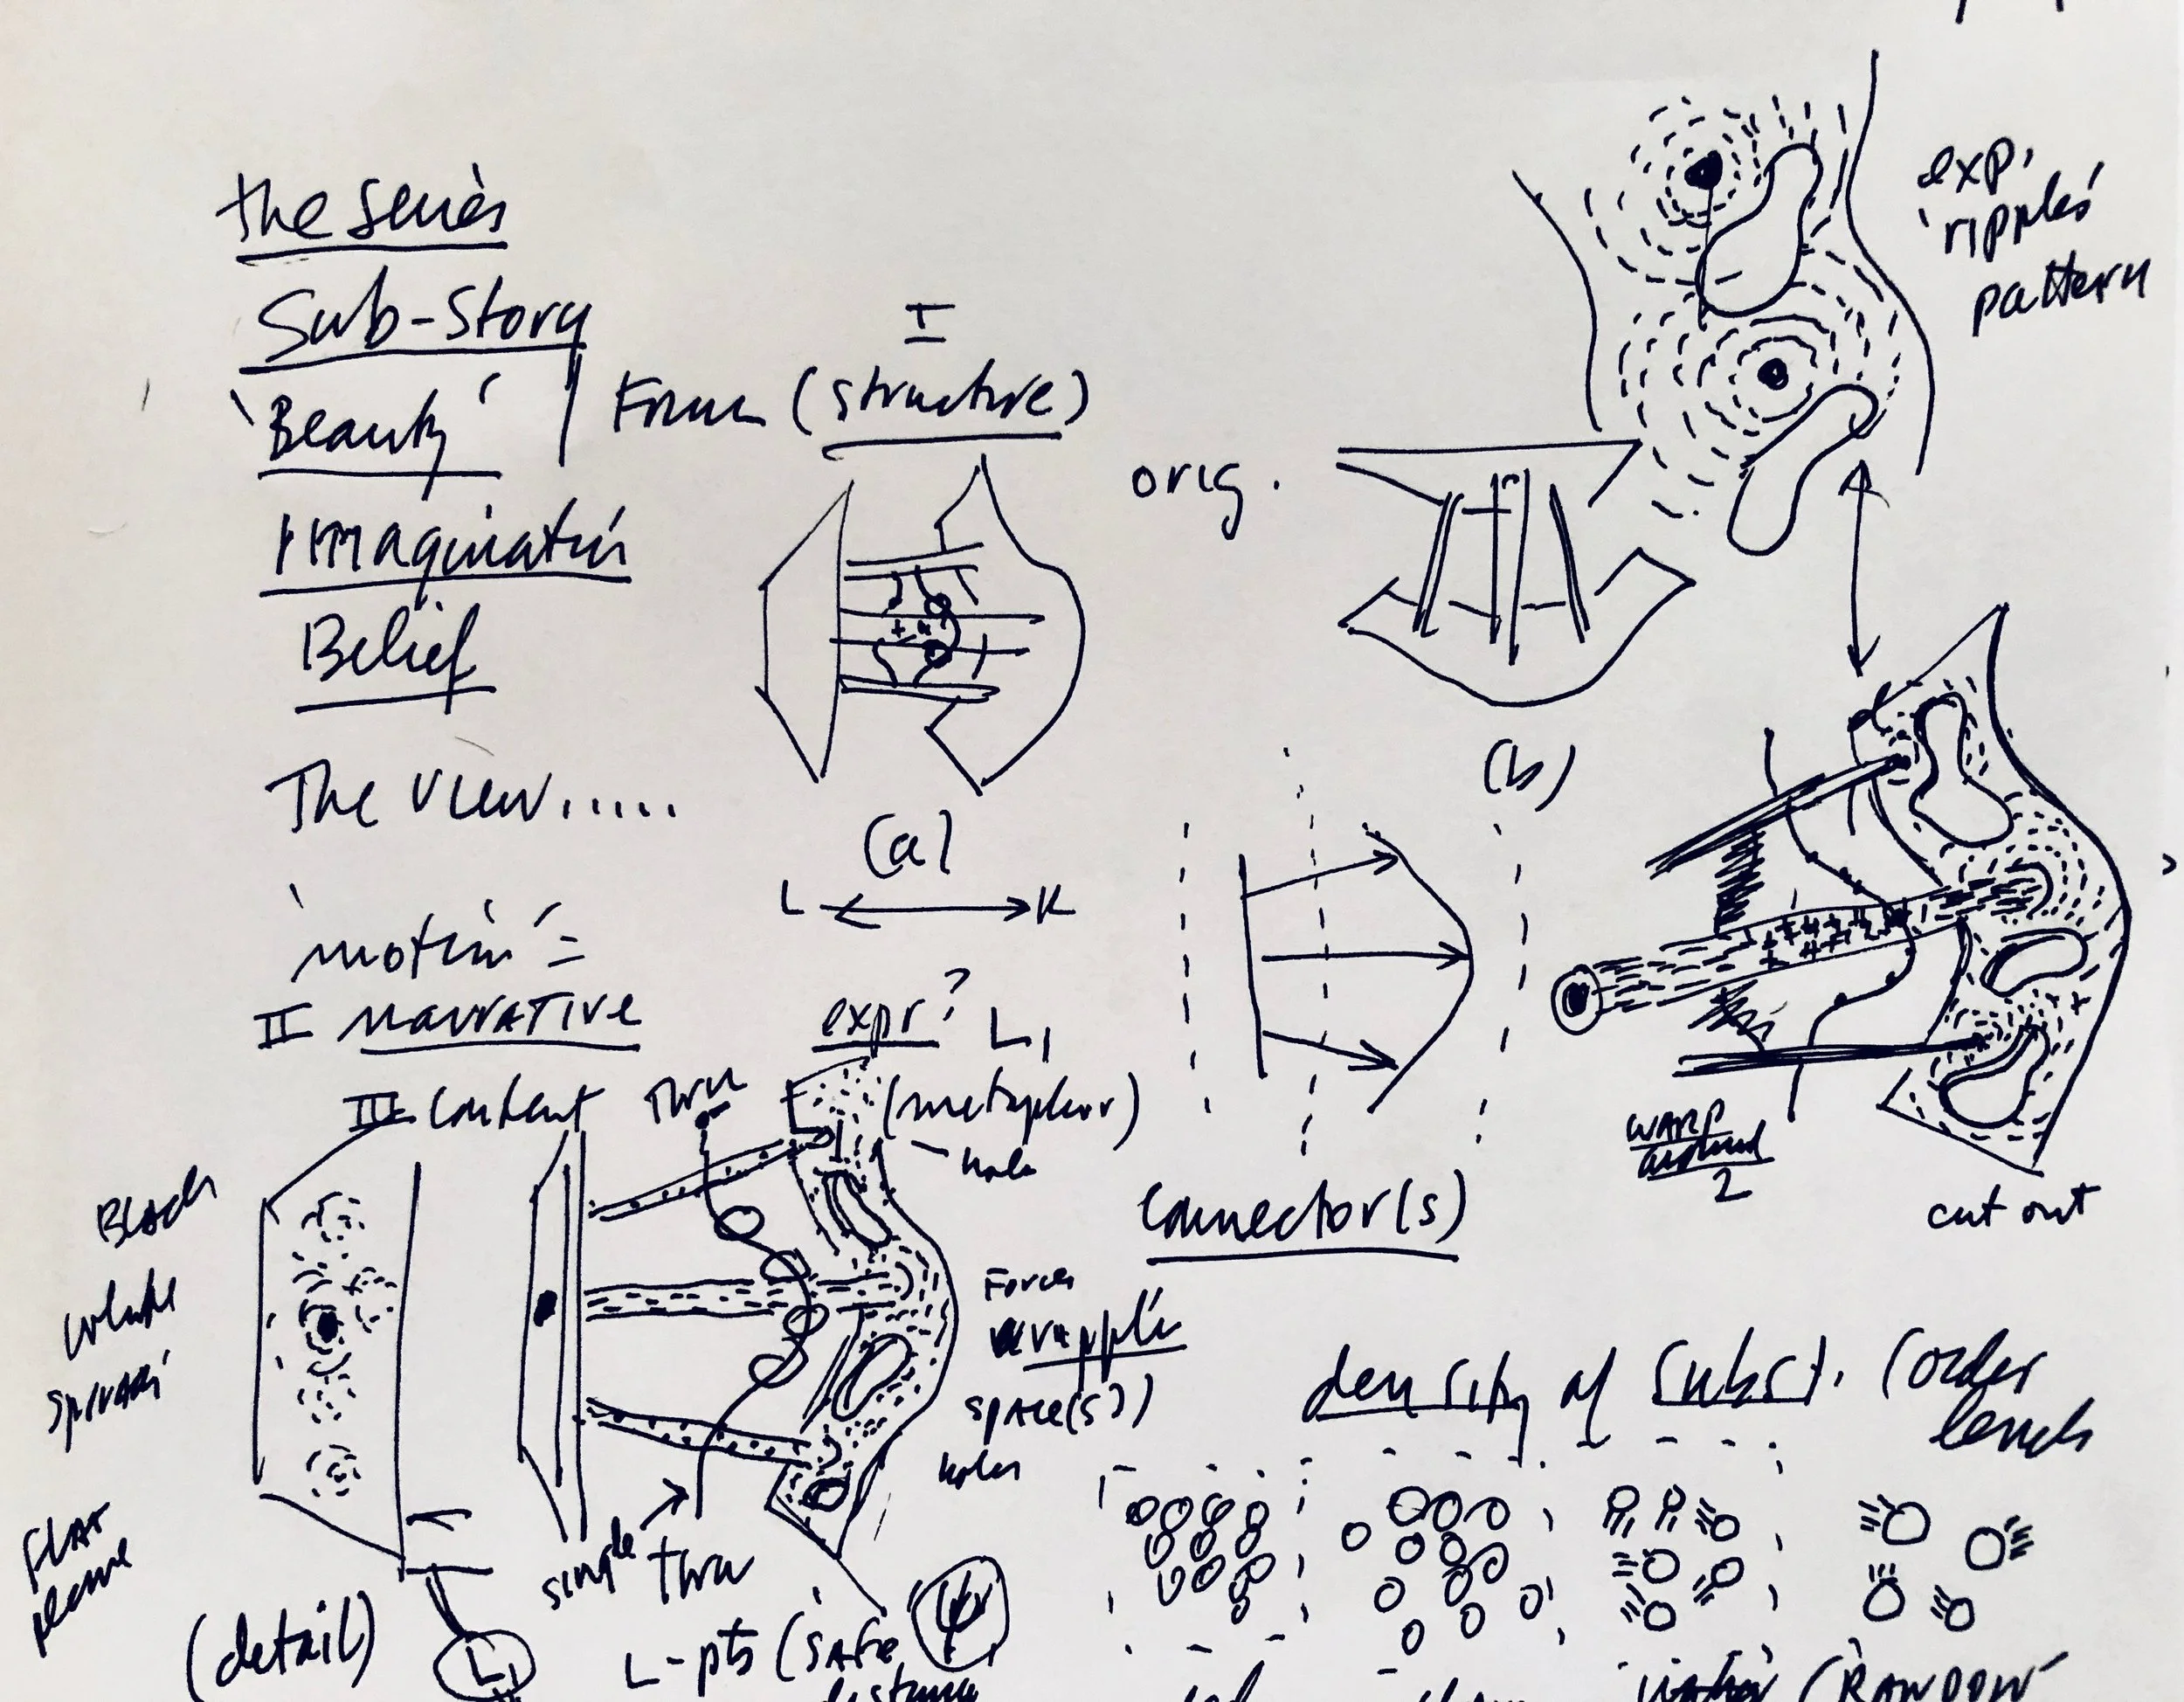 the series
Sub-Story
'Beauty'
Imagination
Belief
The view.....
'motion' =
II NARRATIVE
III Content
I
Form (structure)
(a)
L K
orig.
(b)
exp.
'ripples'
pattern
expr? L1
(metaphor)
hole
Thru
connector(s)
WARP
around
2
cut out
Black
volute
FLAT
plane
(detail)
L1
single Thru
L-pts (SAFE
distance
Forces
space(s?)
holes
density of subst. (order
levels
(RANDOM